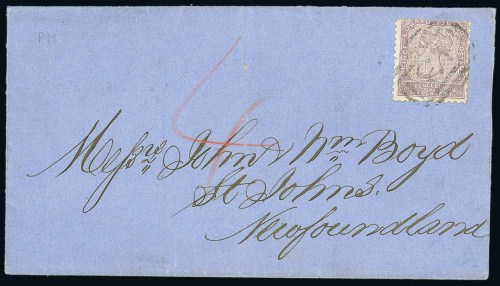 PM
4
Messrs John & Wm Boyd
St Johns.
Newfoundland